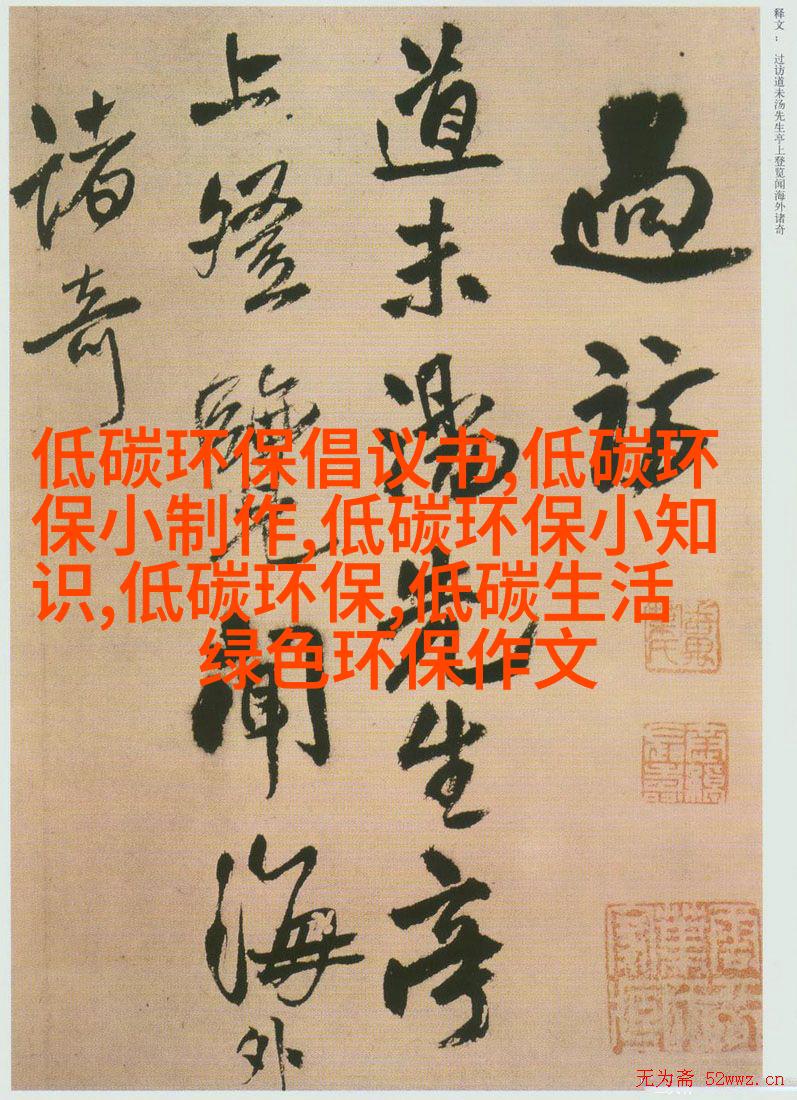 释文： 过访道未汤先生亭上登览闻海外诸奇
過訪
道未湯先生亭
上登覽聞海外
諸奇
低碳环保倡议书,低碳环
保小制作,低碳环保小知
识,低碳环保,低碳生活
绿色环保作文
无为斋 52wwz.cn